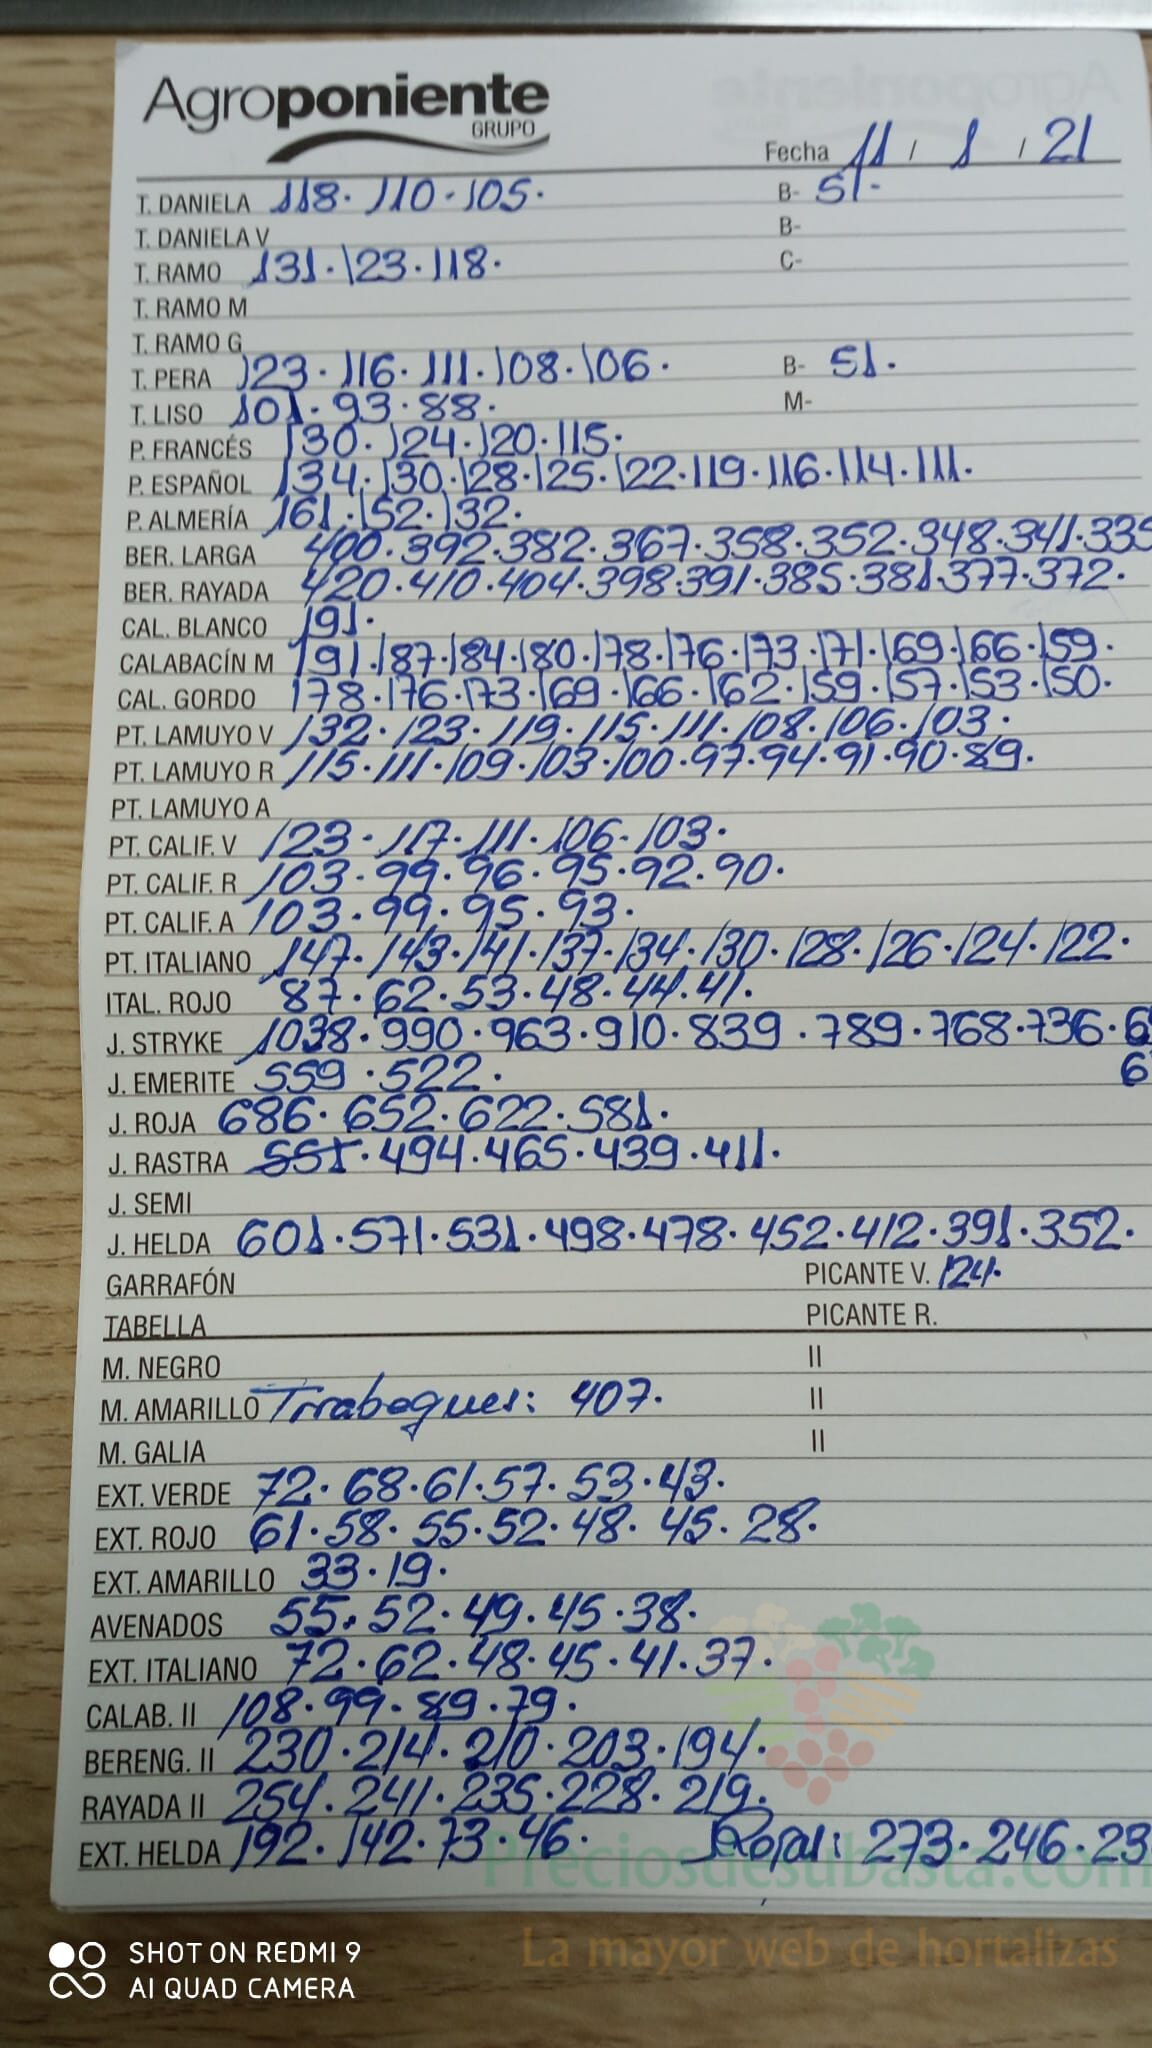 Agroponiente
GRUPO
Fecha 11 / 1 / 21
T. DANIELA 118. 110. 105. B- 51.
T. DANIELA V B-
T. RAMO 131. 123. 118. C-
T. RAMO M
T. RAMO G
T. PERA 123. 116. 111. 108. 106. B- 51.
T. LISO 101. 93. 88. M-
P. FRANCÉS 130. 124. 120. 115.
P. ESPAÑOL 134. 130. 128. 125. 122. 119. 116. 114. 111.
P. ALMERÍA 161. 152. 132.
BER. LARGA 400. 392. 382. 367. 358. 352. 348. 341. 335
BER. RAYADA 420. 410. 404. 398. 391. 385. 381. 377. 372.
CAL. BLANCO 191.
CALABACÍN M 191. 187. 184. 180. 178. 176. 173. 171. 169. 166. 159.
CAL. GORDO 178. 176. 173. 169. 166. 162. 159. 157. 153. 150.
PT. LAMUYO V 132. 123. 119. 115. 111. 108. 106. 103.
PT. LAMUYO R 115. 111. 109. 103. 100. 97. 94. 91. 90. 89.
PT. LAMUYO A
PT. CALIF. V 123. 117. 111. 106. 103.
PT. CALIF. R 103. 99. 96. 95. 92. 90.
PT. CALIF. A 103. 99. 95. 93.
PT. ITALIANO 147. 143. 141. 137. 134. 130. 128. 126. 124. 122.
ITAL. ROJO 87. 62. 53. 48. 44. 41.
J. STRYKE 1038. 990. 963. 910. 839. 789. 768. 736. 6
J. EMERITE 559. 522. 6
J. ROJA 686. 652. 622. 581.
J. RASTRA 551. 494. 465. 439. 411.
J. SEMI
J. HELDA 601. 571. 531. 498. 478. 452. 412. 391. 352.
GARRAFÓN PICANTE V. 124.
TABELLA PICANTE R.
M. NEGRO II
M. AMARILLO Tirabeques: 407. II
M. GALIA II
EXT. VERDE 72. 68. 61. 57. 53. 43.
EXT. ROJO 61. 58. 55. 52. 48. 45. 28.
EXT. AMARILLO 33. 19.
AVENADOS 55. 52. 49. 45. 38.
EXT. ITALIANO 72. 62. 48. 45. 41. 37.
CALAB. II 108. 99. 89. 79.
BERENG. II 230. 214. 210. 203. 194.
RAYADA II 254. 241. 235. 228. 219.
EXT. HELDA 192. 142. 73. 46. : 273. 246. 23
Preciosdesubasta.com
La mayor web de hortalizas
SHOT ON REDMI 9
AI QUAD CAMERA